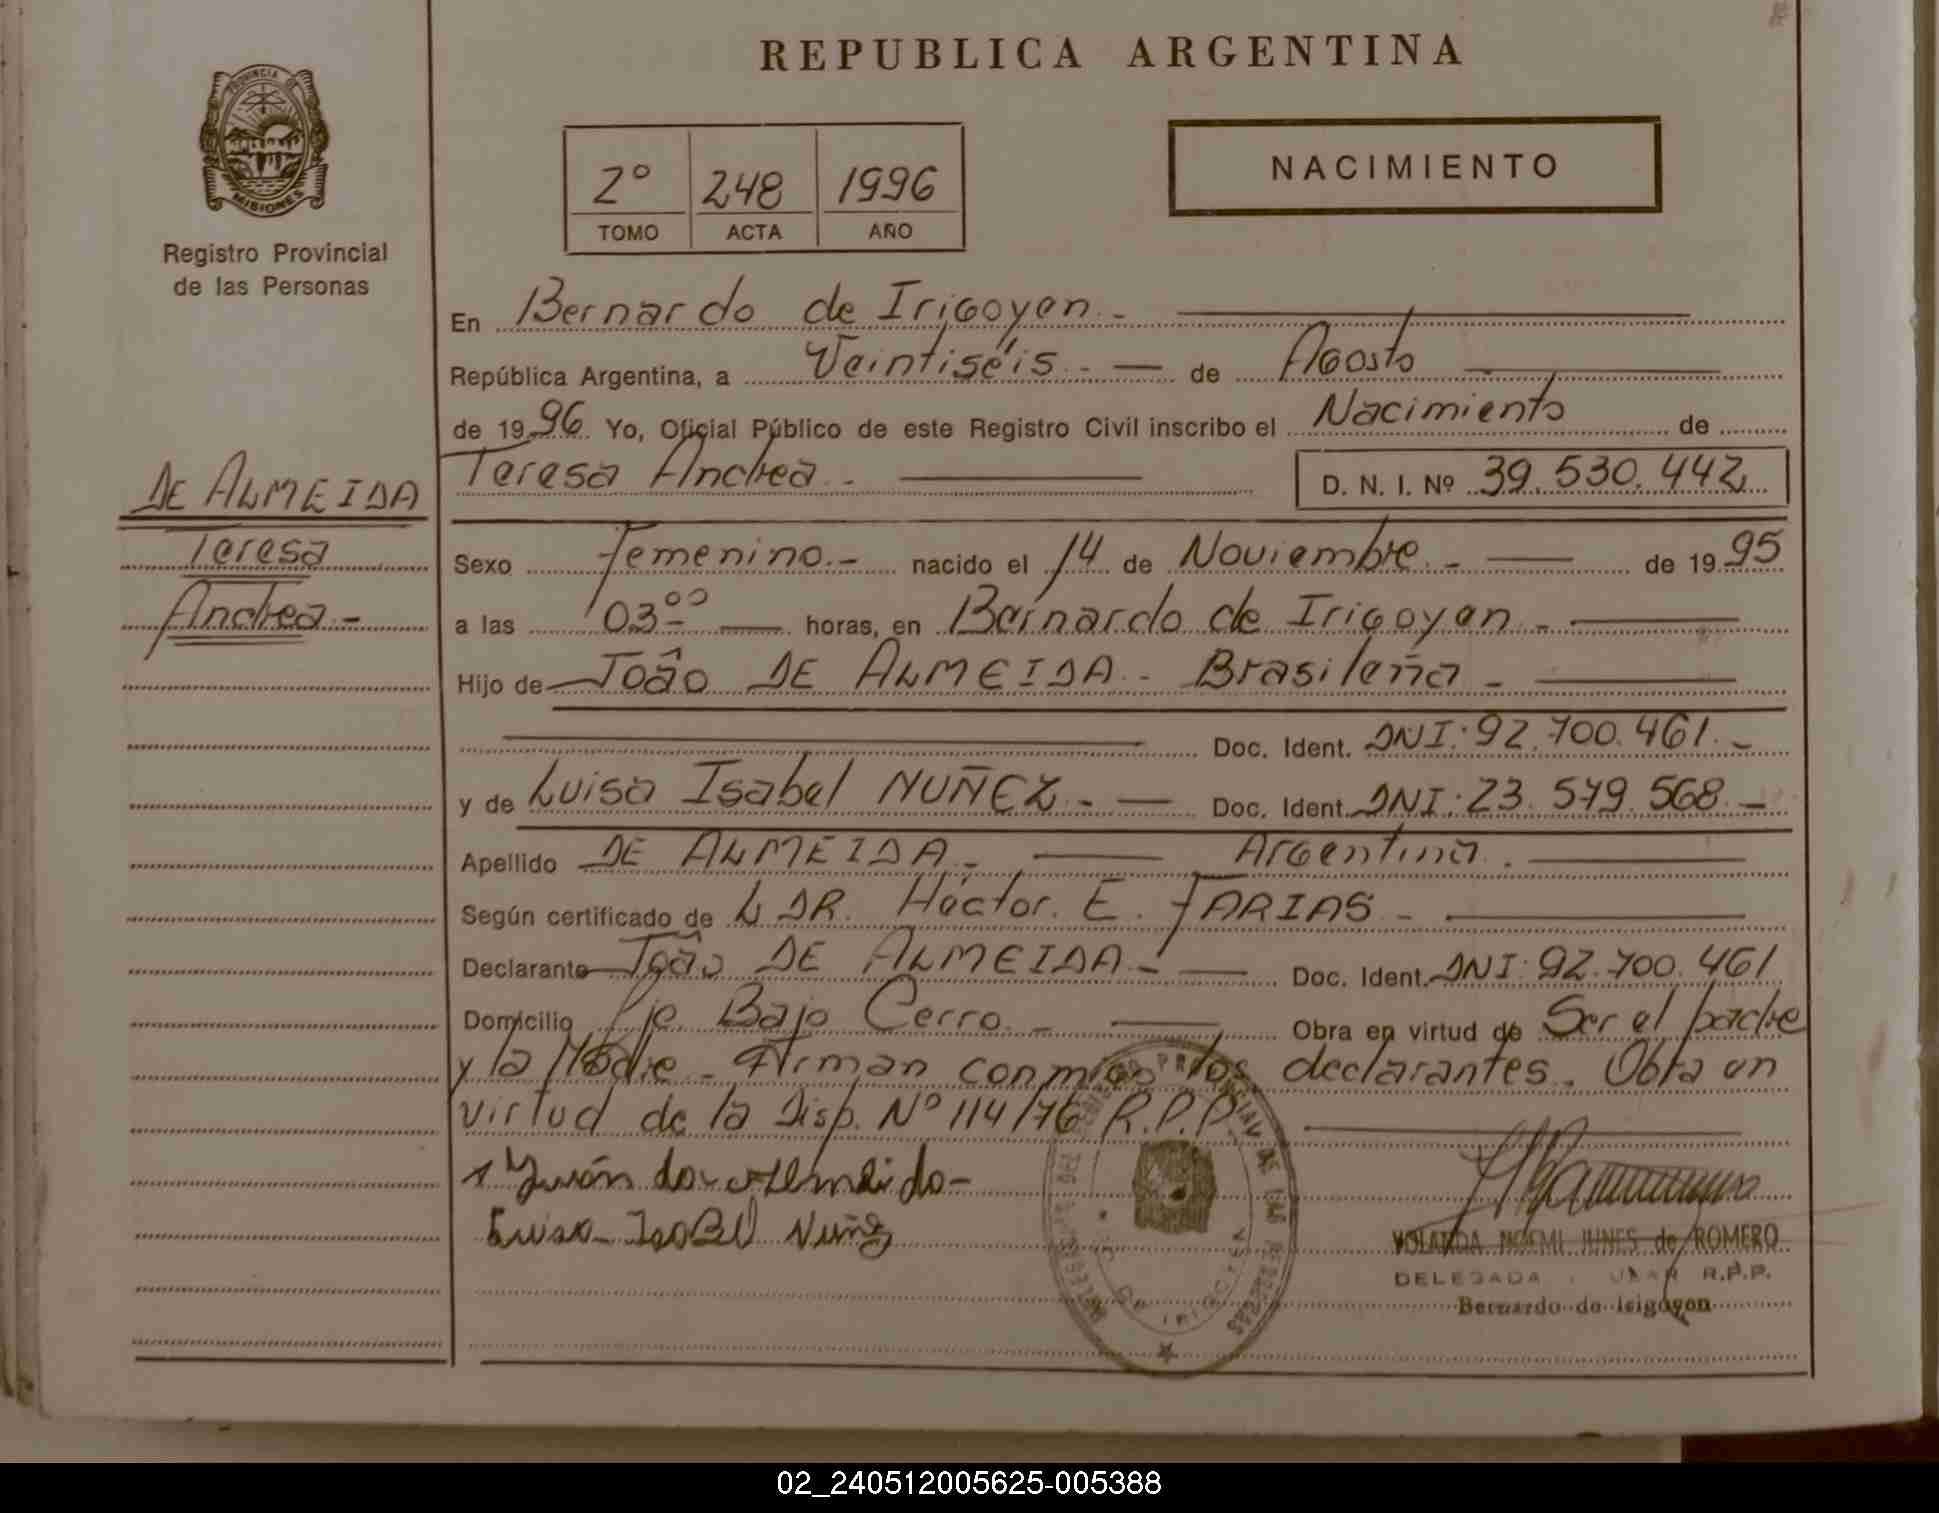 REPUBLICA ARGENTINA
PROVINCIA DE
MISIONES
Registro Provincial
de las Personas
2° 248 1996
TOMO ACTA AÑO
NACIMIENTO
En Bernardo de Irigoyen.-
República Argentina, a Veintiséis.- de Agosto
de 1996 Yo, Oficial Público de este Registro Civil inscribo el Nacimiento de
Teresa Andrea.- D. N. I. Nº 39.530.442
DE ALMEIDA
Teresa
Andrea.-
Sexo Femenino.- nacido el 14 de Noviembre.- de 1995
a las 03°° horas, en Bernardo de Irigoyen.-
Hijo de João DE ALMEIDA.- Brasileña.-
Doc. Ident. DNI: 92.700.461.-
y de Luisa Isabel NUÑEZ.- Doc. Ident. DNI: 23.579.568.-
Apellido DE ALMEIDA.- Argentina.
Según certificado de L DR. Héctor. E. FARIAS.-
Declarante João DE ALMEIDA.- Doc. Ident. DNI: 92.700.461
Domicilio Pje. Bajo Cerro.- Obra en virtud de Ser el padre
y la Madre.- Firman conmigo los declarantes. Obra en
virtud de la Disp. Nº 114/76 R.P.P.
Juán de Almeida-
Luisa Isabel Nuñez
YOLANDA NOEMI JUNES de ROMERO
DELEGADA R.P.P.
Bernardo de Irigoyen
REGISTRO PROVINCIAL DE LAS PERSONAS
DE IRIGOYEN
02_240512005625-005388